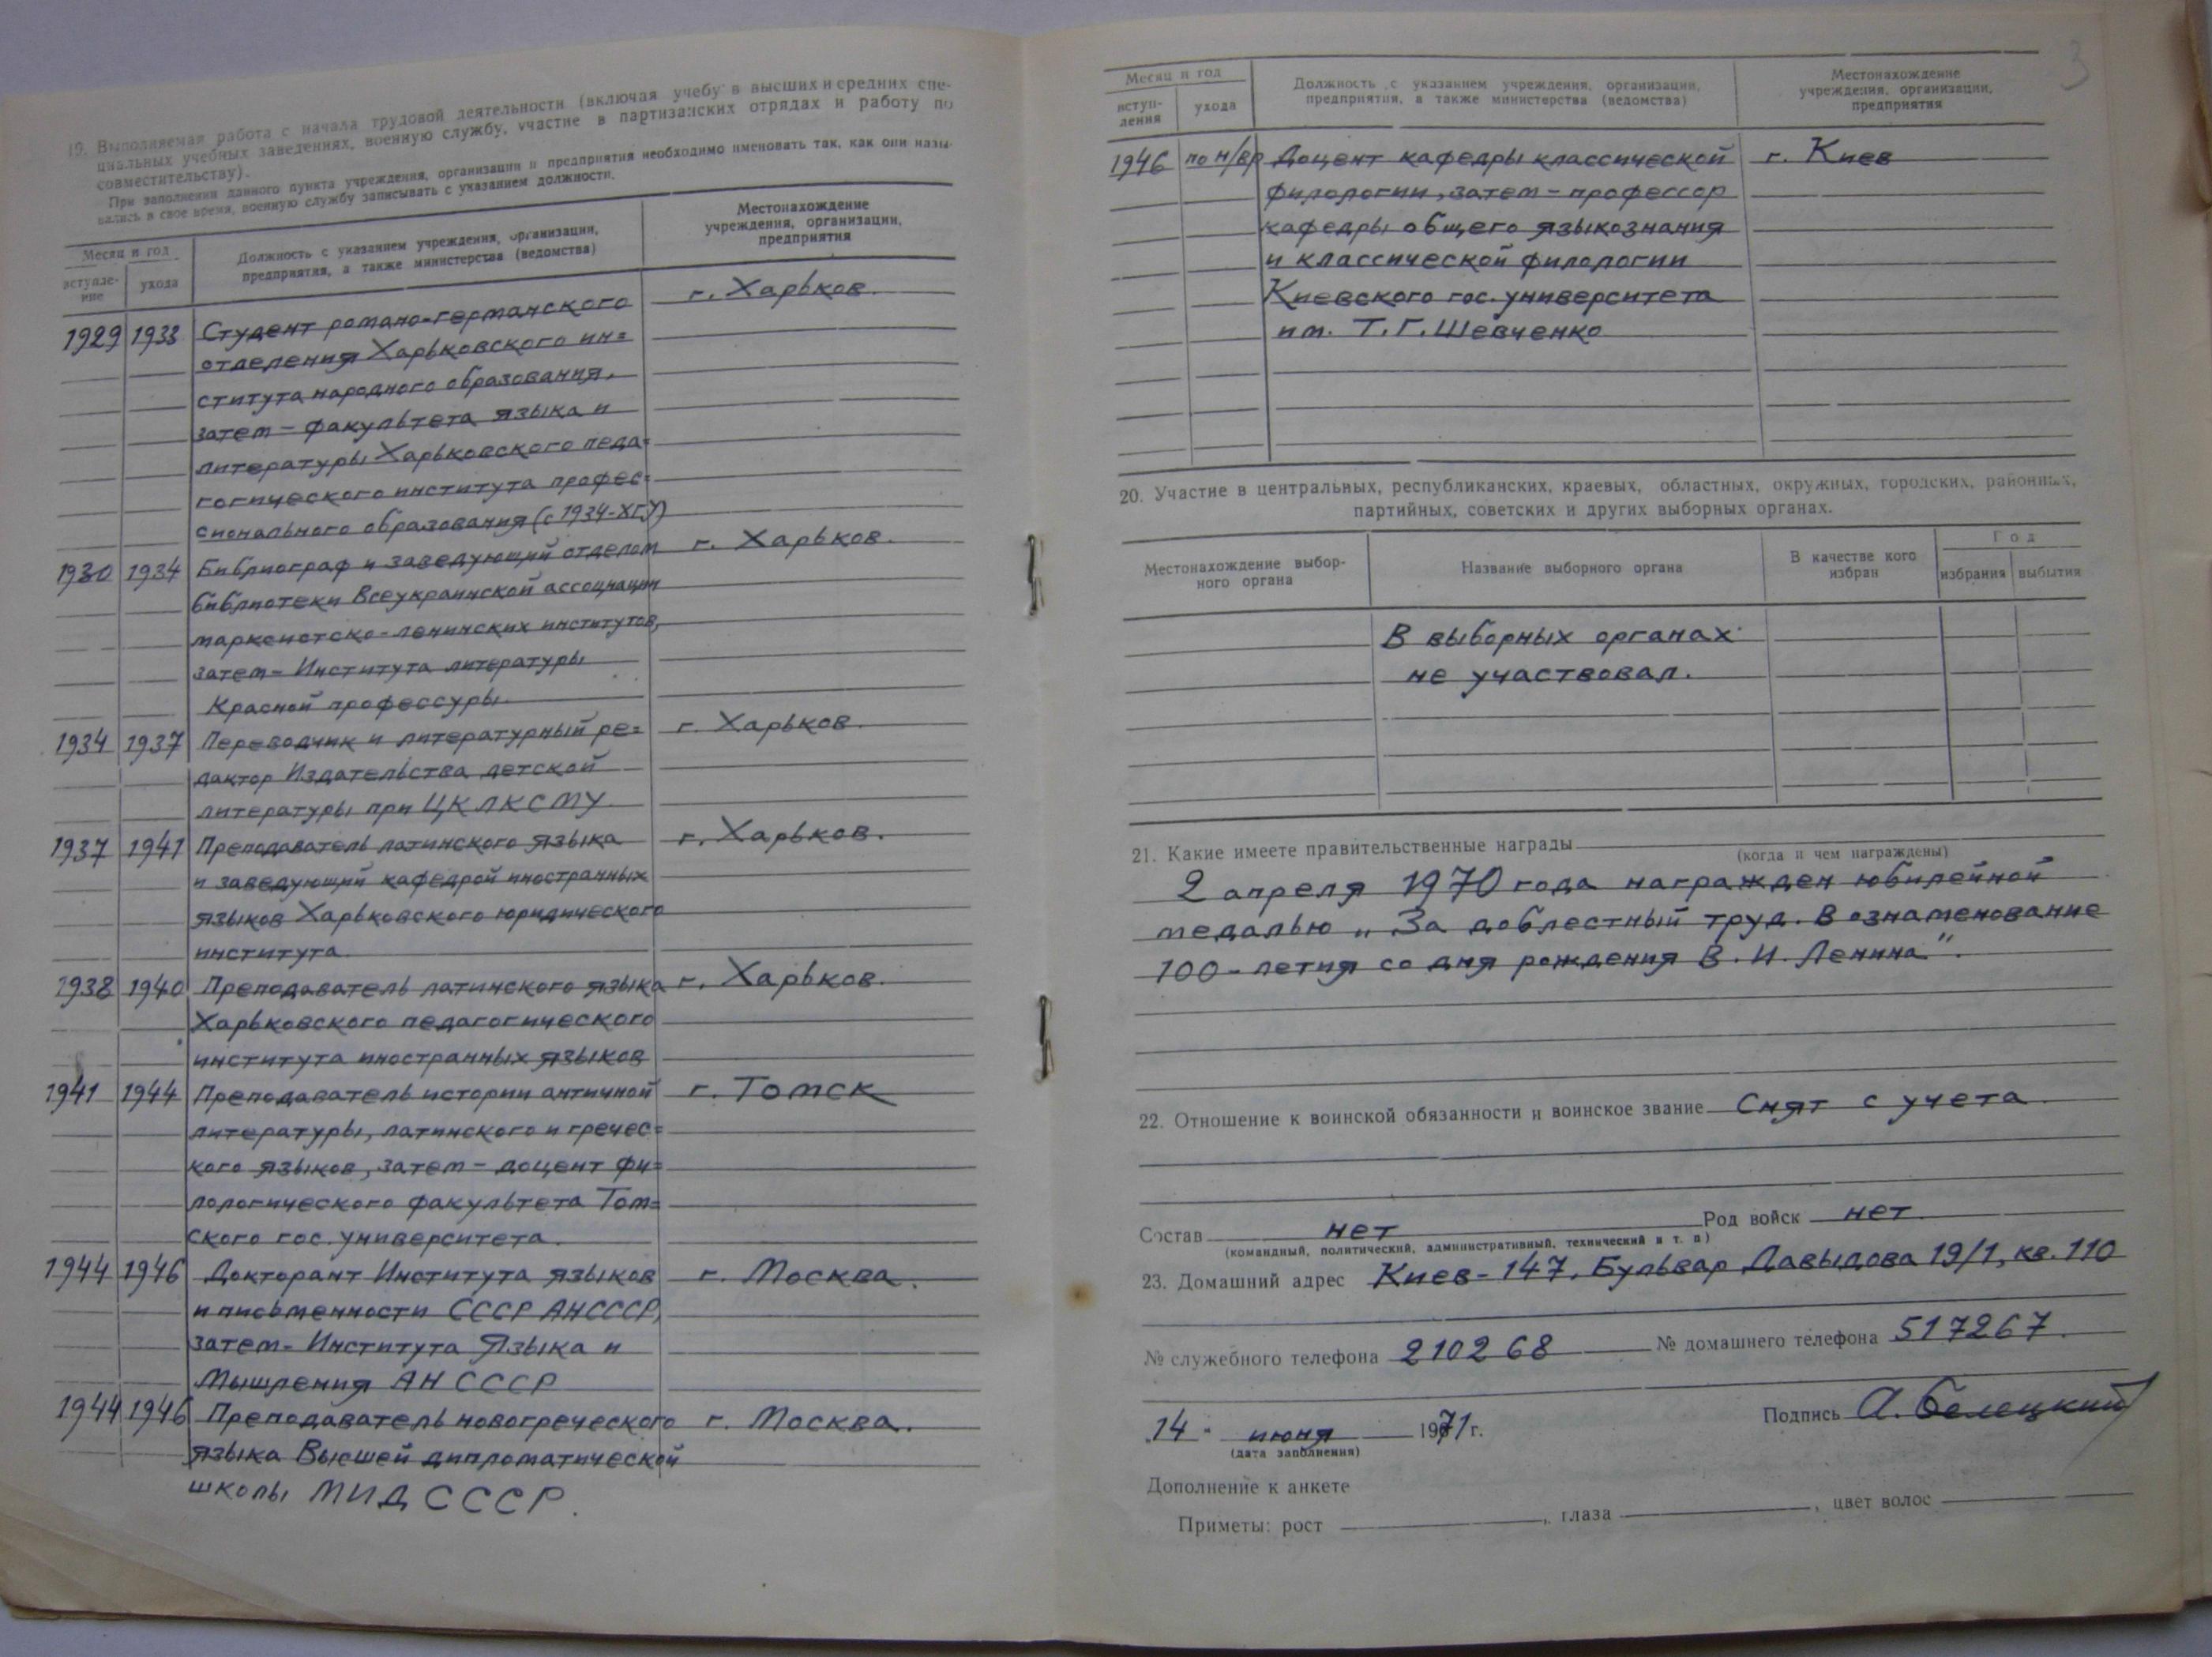 19. Выполняемая работа с начала трудовой деятельности (включая учебу в высших и средних спе-
циальных учебных заведениях, военную службу, участие в партизанских отрядах и работу по
совместительству).
При заполнении данного пункта учреждения, организации и предприятия необходимо именовать так, как они назы-
вались в свое время, военную службу записывать с указанием должности.
Месяц и год
вступле-
ние
ухода
Должность с указанием учреждения, организации,
предприятия, а также министерства (ведомства)
Местонахождение
учреждения, организации,
предприятия
1929 1933 Студент романо-германского г. Харьков.
отделения Харьковского ин=
ститута народного образования,
затем – факультета языка и
литературы Харьковского педа=
гогического института профес=
сионального образования (с 1934-ХГУ)
1930 1934 Библиограф и заведующий отделом г. Харьков.
библиотеки Всеукраинской ассоциации
марксистско-ленинских институтов,
затем – Института литературы
Красной профессуры.
1934 1937 Переводчик и литературный ре= г. Харьков.
дактор Издательства детской
литературы при ЦК ЛКСМУ.
1937 1941 Преподаватель латинского языка г. Харьков.
и заведующий кафедрой иностранных
языков Харьковского юридического
института.
1938 1940 Преподаватель латинского языка г. Харьков.
Харьковского педагогического
института иностранных языков
1941 1944 Преподаватель истории античной г. Томск
литературы, латинского и гречес=
кого языков, затем – доцент фи=
лологического факультета Том=
ского гос. университета.
1944 1946 Докторант Института языков г. Москва.
и письменности СССР АН СССР,
затем – Института Языка и
Мышления АН СССР
1944 1946 Преподаватель новогреческого г. Москва.
языка Высшей дипломатической
школы МИД СССР.
3
Месяц и год
вступ-
ления
ухода
Должность с указанием учреждения, организации,
предприятия, а также министерства (ведомства)
Местонахождение
учреждения, организации,
предприятия
1946 по н/вр Доцент кафедры классической г. Киев
филологии, затем – профессор
кафедры общего языкознания
и классической филологии
Киевского гос. университета
им. Т. Г. Шевченко
20. Участие в центральных, республиканских, краевых, областных, окружных, городских, районных,
партийных, советских и других выборных органах.
Местонахождение выбор-
ного органа
Название выборного органа
В качестве кого
избран
Год
избрания
выбытия
В выборных органах
не участвовал.
21. Какие имеете правительственные награды
(когда и чем награждены)
2 апреля 1970 года награжден юбилейной
медалью „За доблестный труд. В ознаменование
100-летия со дня рождения В. И. Ленина".
22. Отношение к воинской обязанности и воинское звание Снят с учета.
Состав нет Род войск нет.
(командный, политический, административный, технический и т. п)
23. Домашний адрес Киев-147, Бульвар Давыдова 19/1, кв. 110
№ служебного телефона 210268 № домашнего телефона 517267.
„14" июня 1971 г. Подпись А. Белецкий
(дата заполнения)
Дополнение к анкете
Приметы: рост , глаза , цвет волос